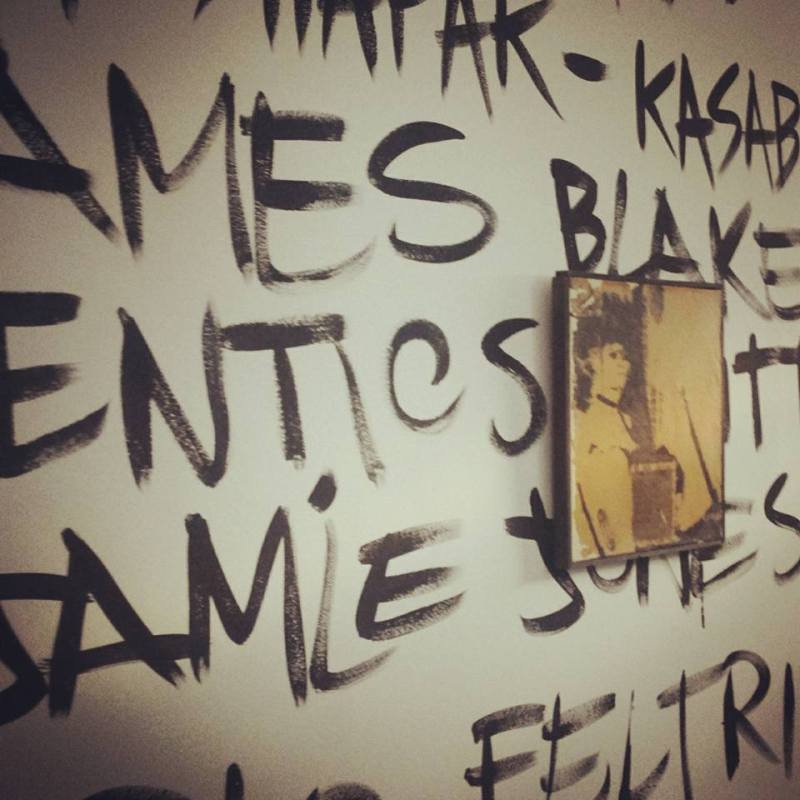 APAR - KASAB
AMES BLAKE
ENTICS TT
SAMIE JONES
FELTRI